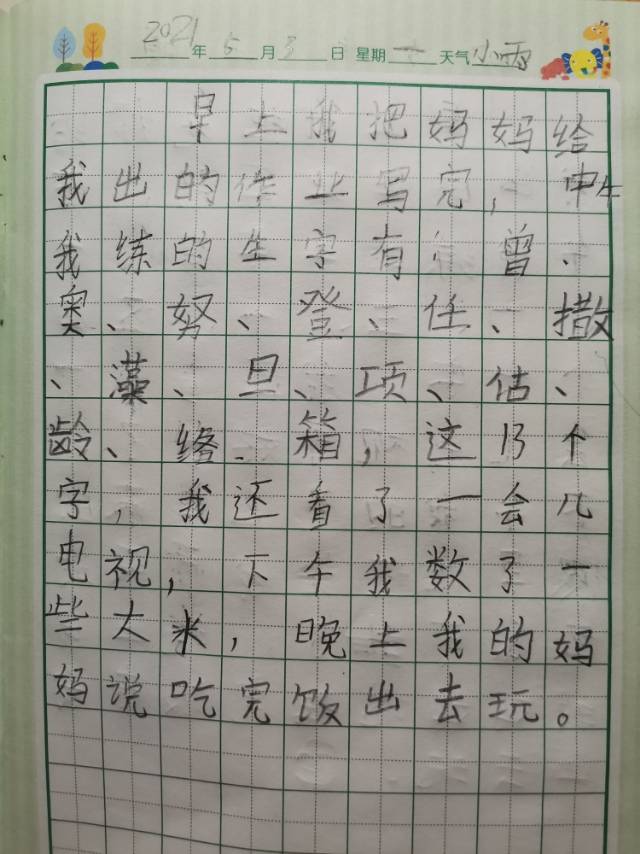 2021年5月3日 星期一 天气小雨
早上我把妈妈给
我出的作业写完，
我练的生字有：曾、
奥、努、登、任、撒
、藻、旦、项、估、
龄、络、箱，这13个
字，我还看了一会儿
电视，下午我数了一
些大米，晚上我的妈
妈说吃完饭出去玩。